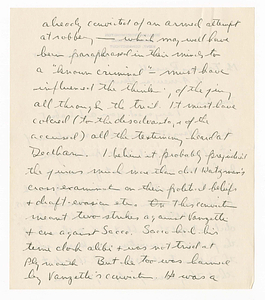 already convicted of an armed attempt
at robbery — which may well have
been paraphrased in their minds to
a "known criminal" — must have
influenced the thinking of the jury
all through the trial. It must have
colored (to the disadvantage of the
accused) all the testimony heard at
Dedham. I believe it probably prejudiced
the jurors much more than did Katzmann's
cross-examination on their political beliefs
& draft-evasion etc. This conviction
meant two strikes against Vanzetti
& one against Sacco. Sacco had his
time clock alibi & was not tried at
Plymouth. But he too was harmed
by Vanzetti's conviction. He was a